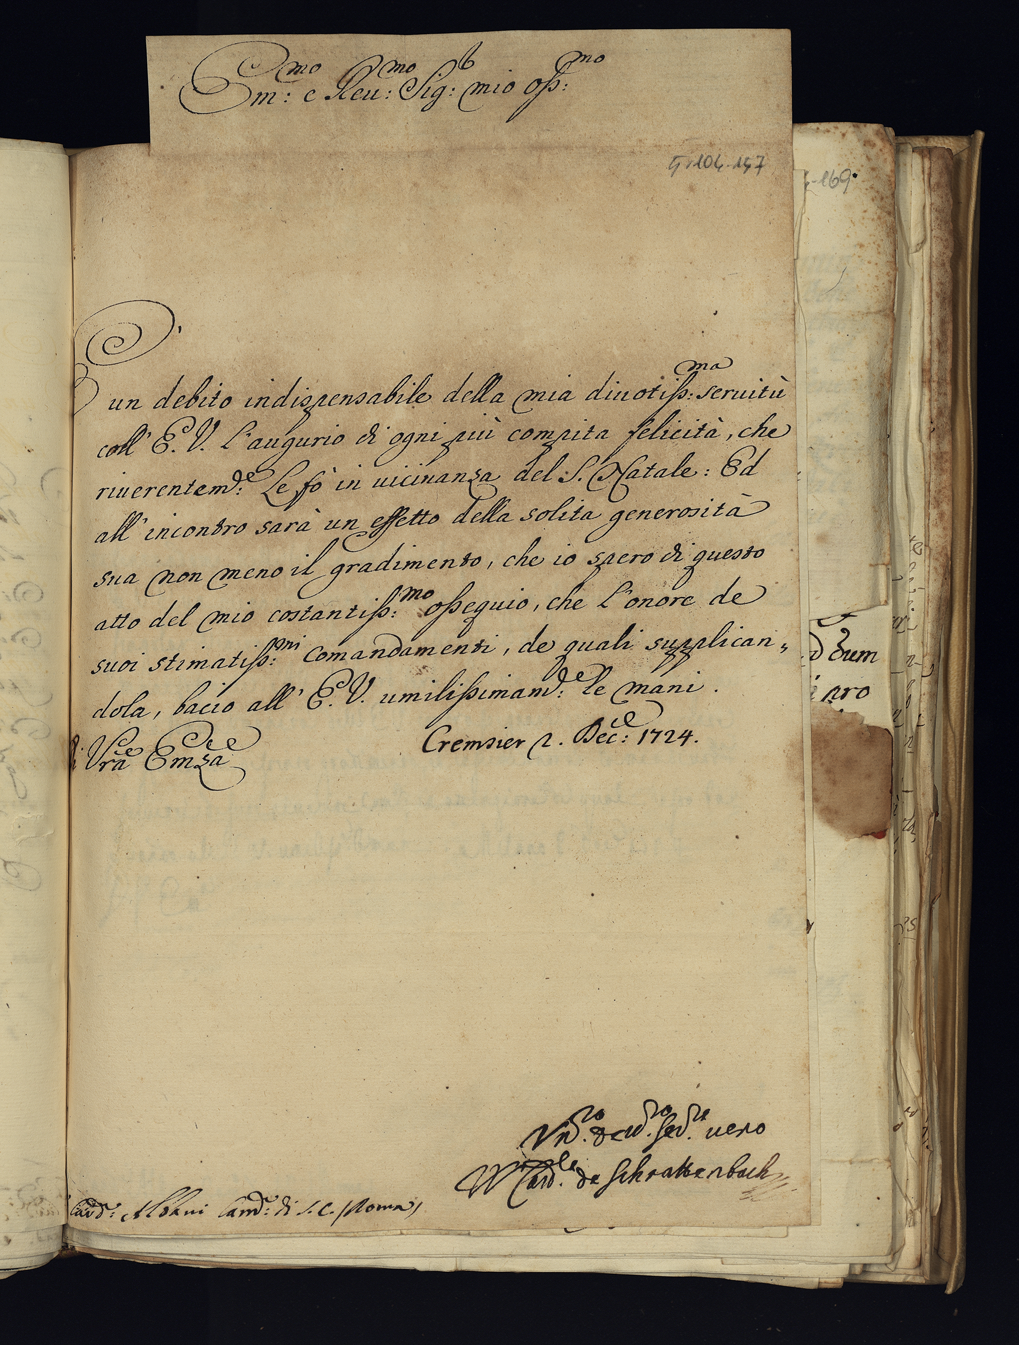 Em:mo e Reu:mo Sig:r mio oss:mo
È un debito indispensabile della mia diuotiss:ma seruitù
coll' E. V. l'augurio di ogni più compita felicità, che
riuerentemde: Le fò in uicinanza del S. Natale: Ed
all' incontro sarà un effetto della solita generosità
sua non meno il gradimento, che io spero di questo
atto del mio costantiss:mo ossequio, che l'onore de
suoi stimatiss:mi comandamenti, de quali supplican,,
dola, bacio all' E. V. umilissimamde: le mani.
di Vrã Emza
Cremsier 2. Dec: 1724.
uero
W Card:le de Schrattenbach
Card: Albani Camd: di S. C. (Roma)